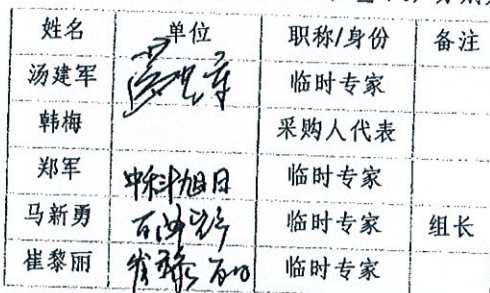 姓名 单位 职称/身份 备注
汤建军 临时专家
韩梅 采购人代表
郑军 中科旭日 临时专家
马新勇 临时专家 组长
崔黎丽 临时专家